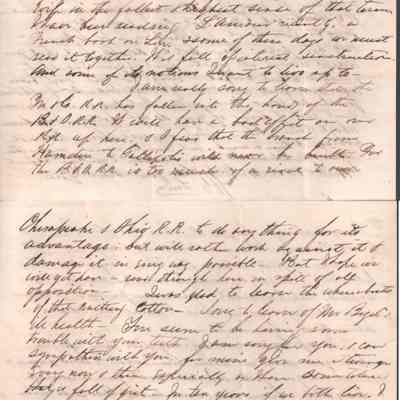 in the fullest & happiest sense of that term
I have been reading "L'amour" recently, a
French book on Love, & some of these days we must
read it together. It is full of interest & instruction
And some of its notions I want to live up to—
I am really sorry to learn that the
M & C. R.R. has fallen into the hands of the
B & O. R.R. It will have a bad effect on our
R.R. up here, & I fear that the branch from
Hamden to Gallipolis will never be built. For
the B. & O. R.R. is too much of a rival to our
Chesapeake & Ohio R.R. to do anything for its
advantage: but will rather work against it &
damage it in any way possible— But I hope we
will yet have a road through here in spite of all
opposition— I was glad to learn the whereabouts
of that knitting cotton— Sorry to learn of Mrs
ill health— You seem to be having some
trouble with your teeth. I am sorry for you, & can
sympathise with you for mine give me a twinge
every now & then especially
is full of grit— In ten years if we both live, I